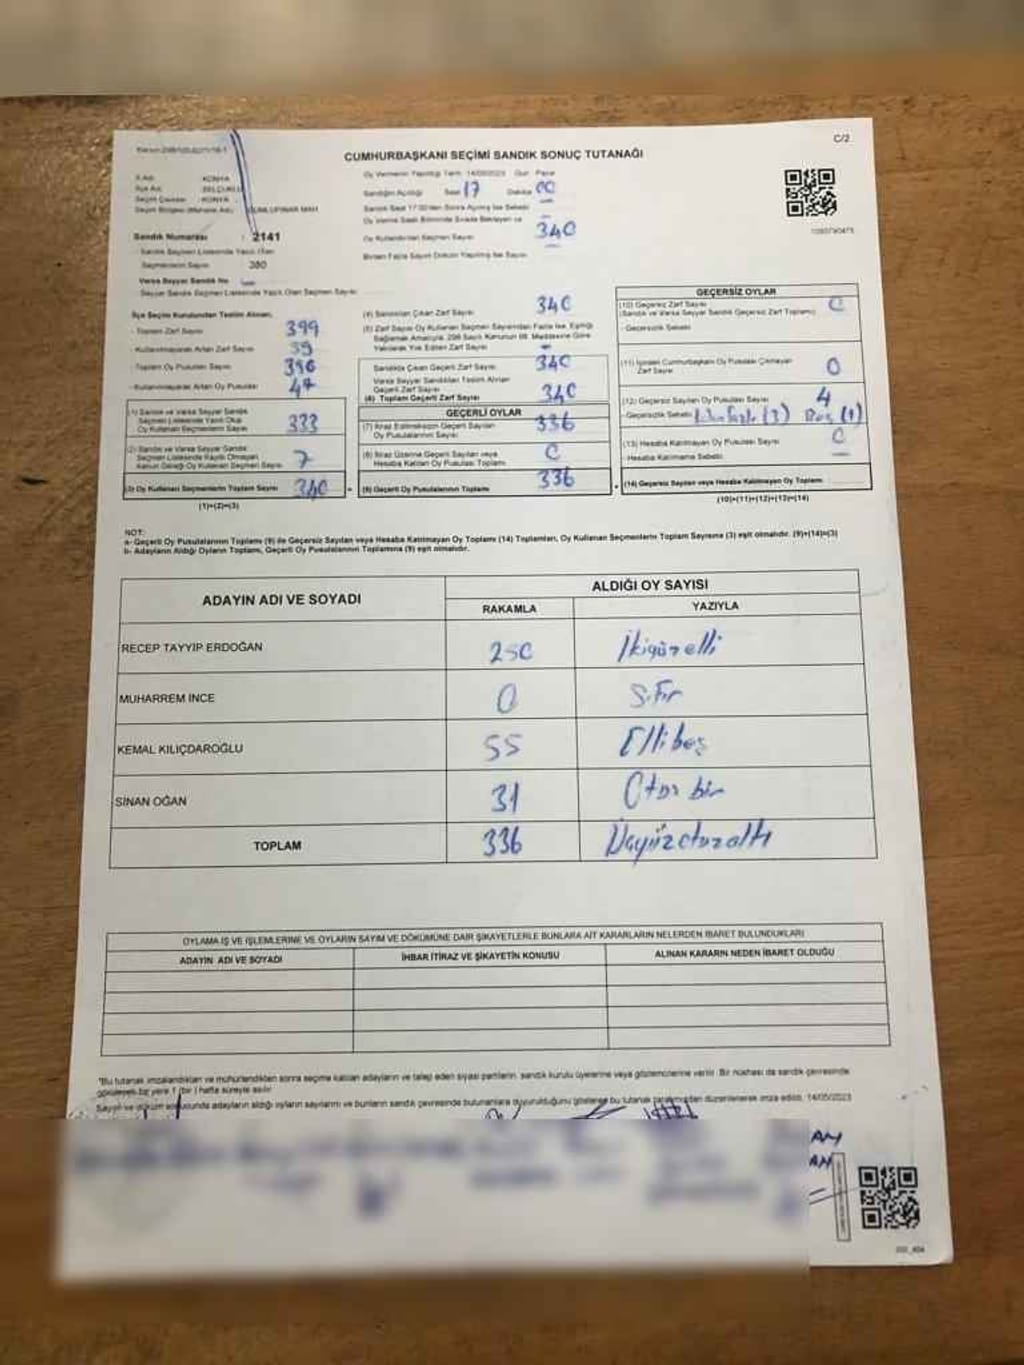 C/2
CUMHURBAŞKANI SEÇİMİ SANDIK SONUÇ TUTANAĞI
İl Adı : KONYA
İlçe Adı : SELÇUKLU
Seçim Çevresi : KONYA
Seçim Bölgesi (Mahalle Adı)
Sandık Numarası : 2141
Sandık Seçmen Listesinde Yazılı Olan
Seçmenlerin Sayısı 380
Varsa Seyyar Sandık No
Seyyar Sandık Seçmen Listesinde Yazılı Olan Seçmen Sayısı
Oy Vermenin Yapıldığı Tarih 14/05/2023 Gün Pazar
Sandığın Açıldığı Saat 17 Dakika 00
Sandık Saat 17:00'den Sonra Açılmış İse Sebebi
Oy Kullandırılan Seçmen Sayısı 340
Birden Fazla Sayım Döküm Yapılmış İse Sayısı
İlçe Seçim Kurulundan Teslim Alınan,
- Toplam Zarf Sayısı 399
- Kullanılmayarak Artan Zarf Sayısı
- Toplam Oy Pusulası Sayısı
- Kullanılmayarak Artan Oy Pusulası
(1) Sandık ve Varsa Seyyar Sandık
Seçmen Listesinde Yazılı Olup
Oy Kullanan Seçmenlerin Sayısı 333
(2) Sandık ve Varsa Seyyar Sandık
Seçmen Listesinde Kayıtlı Olmayan
Kanun Gereği Oy Kullanan Seçmenlerin Sayısı 7
(3) Oy Kullanan Seçmenlerin Toplam Sayısı 340
(1)+(2)=(3)
(4) Sandıktan Çıkan Zarf Sayısı 340
(5) Zarf Sayısı Oy Kullanan Seçmen Sayısından Fazla İse, Eşitliği
Sağlamak Amacıyla, 298 Sayılı Kanunun 98. Maddesine Göre
Yakılarak Yok Edilen Zarf Sayısı -
Sandıkta Çıkan Geçerli Zarf Sayısı 340
Varsa Seyyar Sandıktan Teslim Alınan
Geçerli Zarf Sayısı
(6) Toplam Geçerli Zarf Sayısı 340
GEÇERLİ OYLAR
(7) İtiraz Edilmeksizin Geçerli Sayılan
Oy Pusulalarının Sayısı 336
(8) İtiraz Üzerine Geçerli Sayılan veya
Hesaba Katılan Oy Pusulası Toplamı 0
(9) Geçerli Oy Pusulalarının Toplamı 336
GEÇERSİZ OYLAR
(10) Geçersiz Zarf Sayısı 0
(Sandık ve Varsa Seyyar Sandık Geçersiz Zarf Toplamı)
- Geçersizlik Sebebi
(11) İçinden Cumhurbaşkanı Oy Pusulası Çıkmayan
Zarf Sayısı 0
(12) Geçersiz Sayılan Oy Pusulası Sayısı 4
- Geçersizlik Sebebi (3) Boş (1)
(13) Hesaba Katılmayan Oy Pusulası Sayısı 0
- Hesaba Katılmama Sebebi
(14) Geçersiz Sayılan veya Hesaba Katılmayan Oy Toplamı
(10)+(11)+(12)+(13)=(14)
NOT:
a- Geçerli Oy Pusulalarının Toplamı (9) ile Geçersiz Sayılan veya Hesaba Katılmayan Oy Toplamı (14) Toplamları, Oy Kullanan Seçmenlerin Toplam Sayısına (3) eşit olmalıdır. (9)+(14)=(3)
b- Adayların Aldığı Oyların Toplamı, Geçerli Oy Pusulalarının Toplamına (9) eşit olmalıdır.
ADAYIN ADI VE SOYADI ALDIĞI OY SAYISI
RAKAMLA YAZIYLA
RECEP TAYYIP ERDOĞAN 250 İkiyüzelli
MUHARREM İNCE 0 Sıfır
KEMAL KILIÇDAROĞLU 55 Ellibeş
SİNAN OĞAN 31 Otuz bir
TOPLAM 336 Üçyüzotuzaltı
OYLAMA İŞ VE İŞLEMLERİNE VE OYLARIN SAYIM VE DÖKÜMÜNE DAİR ŞİKAYETLERLE BUNLARA AİT KARARLARIN NELERDEN İBARET BULUNDUKLARI
ADAYIN ADI VE SOYADI İHBAR İTİRAZ VE ŞİKAYETİN KONUSU ALINAN KARARIN NEDEN İBARET OLDUĞU
*Bu tutanak imzalandıktan ve mühürlendikten sonra seçime katılan adayların ve talep eden siyasi partilerin, sandık kurulu üyelerine veya gözlemcilerine verilir. Bir nüshası da sandık çevresinde
görülecek bir yere 1 (bir) hafta süreyle asılır.
Sayım ve döküm sonucunda adayların aldığı oyların sayılarını ve bunların sandık çevresinde bulunanlara duyurulduğunu gösteren bu tutanak tarafımızdan düzenlenerek imza edildi. 14/05/2023